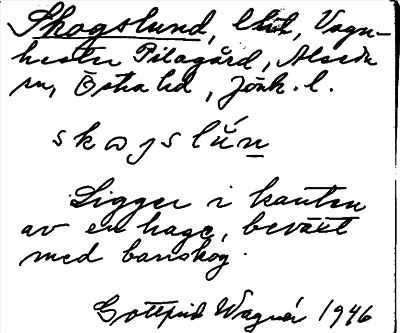 Skogslund, lht, Vagn-
hester Pilagård, Alseda
sn, Östra hd, Jönk. l.
skogslún
Ligger i kanten
av en hage, beväxt
med barrskog.
Gottfrid Wagnér 1946